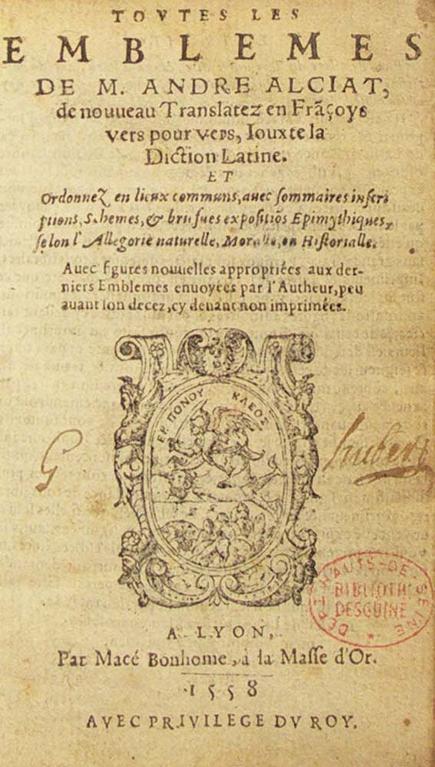 TOVTES LES
EMBLEMES
DE M. ANDRE ALCIAT,
de nouueau Translatez en Frãçoys
vers pour vers, Iouxte la
Diction Latine.
ET
Ordonnez en lieux communs, auec sommaires inscri
ptions, Schemes, & briefues expositiõs Epimythiques,
selon l'Allegorie naturelle, Moralle, ou Historialle.
Auec figures nouuelles appropriées aux der-
niers Emblemes enuoyées par l'Autheur, peu
auant son decez, cy deuant non imprimées.
ΕΚ ΠΟΝΟΥ ΚΛΕΟΣ
G Hubert
DEPT HAUTS-DE-SEINE
BIBLIOTH.
DESGUINE
A LYON,
Par Macé Bonhome, a la Masse d'Or.
1558
AVEC PRIVILEGE DV ROY.